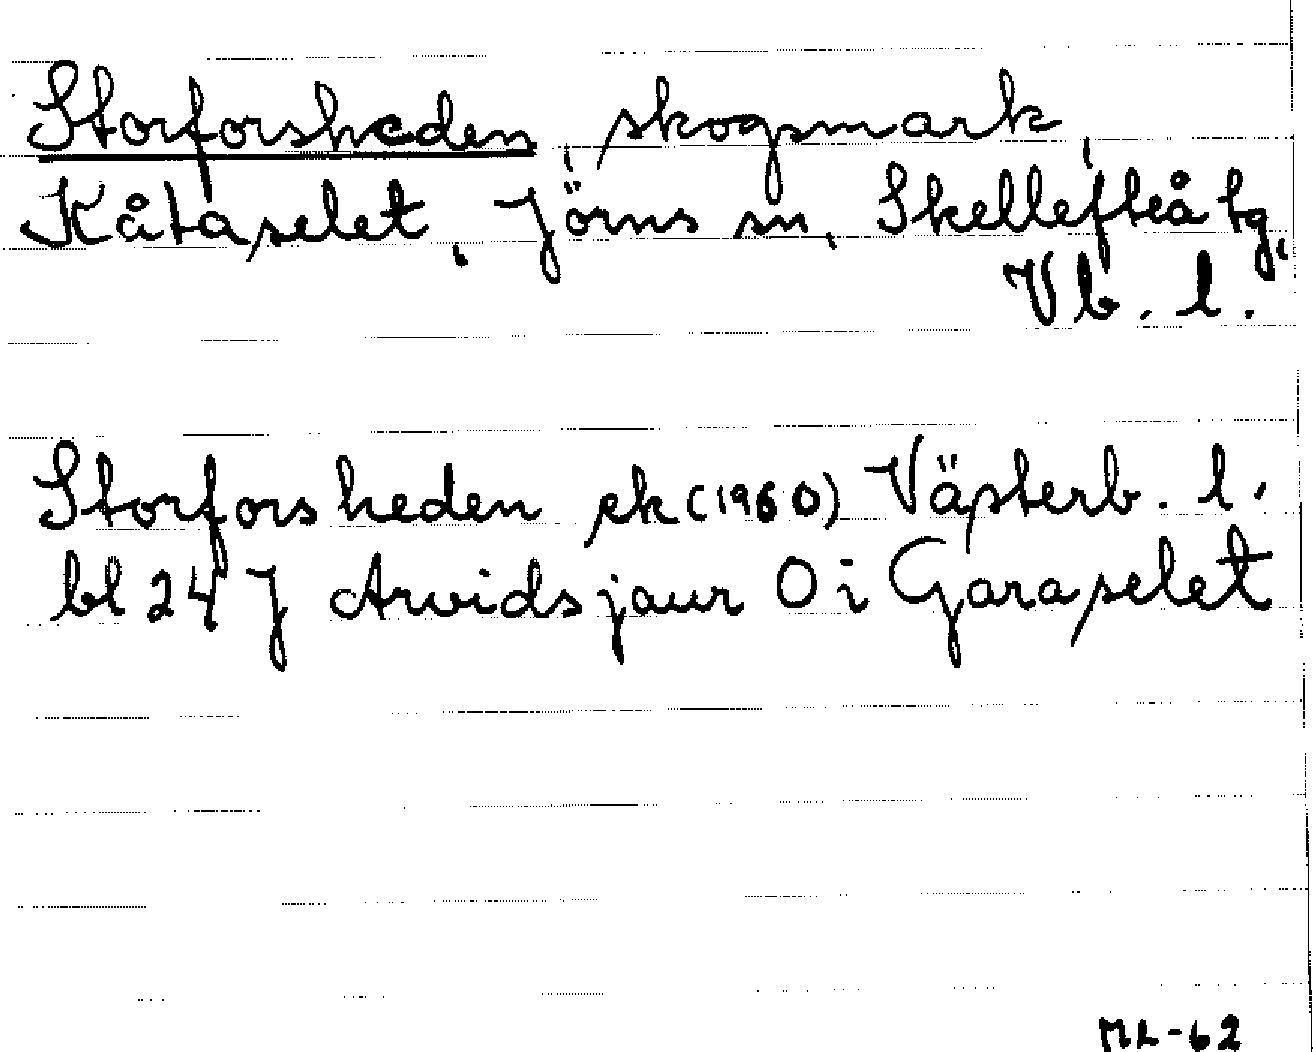 Storforsheden, skogsmark,
Kåtaselet, Jörns sn, Skellefteå tg,
Vb. l.
Storforsheden ek (1960) Västerb. l.
bl 24 J Arvidsjaur O i Garaselet
ML-62